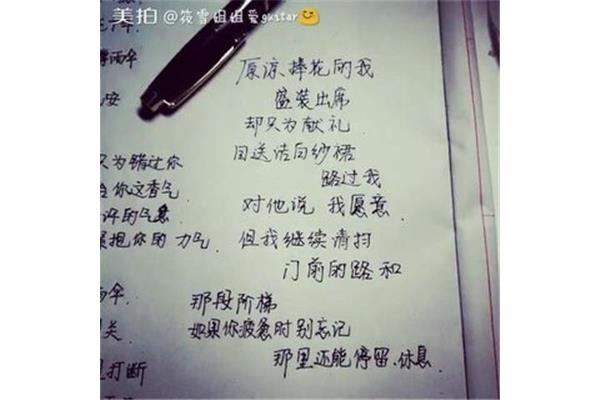 美拍 @筱雪姐姐爱guitar
原谅捧花的我
盛装出席
却只为献礼
目送洁白纱裙
路过我
对他说 我愿意
但我继续清扫
门前的路和
那段阶梯
如果你疲惫时别忘记
那里还能停留、休息
雨伞
安
只为错过你
你这香气
许的气息
抱你的力气
雨伞
关
打断